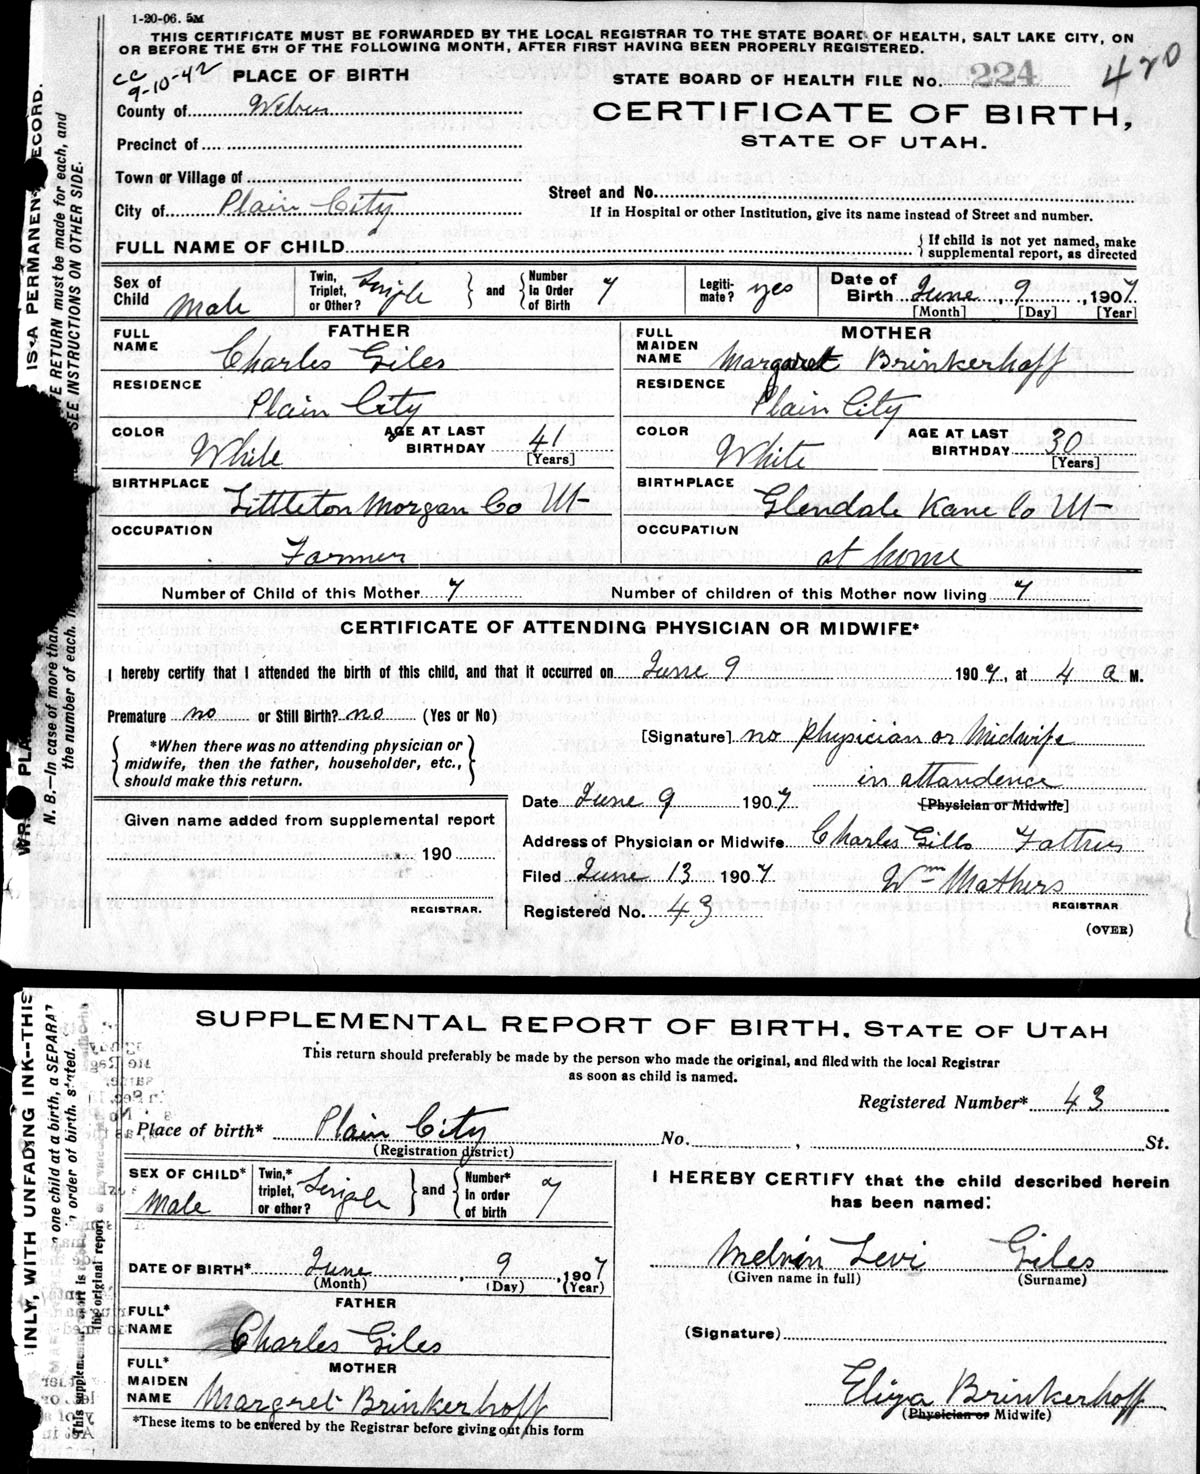 1-20-06. 5M
THIS CERTIFICATE MUST BE FORWARDED BY THE LOCAL REGISTRAR TO THE STATE BOARD OF HEALTH, SALT LAKE CITY, ON
OR BEFORE THE 5TH OF THE FOLLOWING MONTH, AFTER FIRST HAVING BEEN PROPERLY REGISTERED.
CC
9-10-42
PLACE OF BIRTH
STATE BOARD OF HEALTH FILE No. 224
420
County of Weber
CERTIFICATE OF BIRTH,
STATE OF UTAH.
Precinct of
Town or Village of
Street and No.
City of Plain City
If in Hospital or other Institution, give its name instead of Street and number.
FULL NAME OF CHILD
{ If child is not yet named, make supplemental report, as directed
Sex of Child Male
Twin, Triplet, or Other? Single } and { Number In Order of Birth 7
Legiti-mate? yes
Date of Birth June, 9, 1907.
[Month] [Day] [Year]
FATHER
FULL NAME Charles Giles
MOTHER
FULL MAIDEN NAME Margaret Brinkerhoff
RESIDENCE Plain City
RESIDENCE Plain City
COLOR White AGE AT LAST BIRTHDAY 41 [Years]
COLOR White AGE AT LAST BIRTHDAY 30 [Years]
BIRTHPLACE Littleton Morgan Co Ut
BIRTHPLACE Glendale Kane Co Ut
OCCUPATION Farmer
OCCUPATION at home
Number of Child of this Mother 7 Number of children of this Mother now living 7
CERTIFICATE OF ATTENDING PHYSICIAN OR MIDWIFE*
I hereby certify that I attended the birth of this child, and that it occurred on June 9 1907, at 4 a M.
Premature no or Still Birth? no (Yes or No)
*When there was no attending physician or
midwife, then the father, householder, etc.,
should make this return.
[Signature] no physician or Midwife
in attendence
[Physician or Midwife]
Date June 9 1907
Given name added from supplemental report
190
REGISTRAR.
Address of Physician or Midwife Charles Gills Father
Filed June 13 1907 Wm Mathers
REGISTRAR
Registered No. 43
(OVER)
IS A PERMANENT RECORD.
RETURN must be made for each, and
SEE INSTRUCTIONS ON OTHER SIDE.
N. B.—In case of more than
the number of each.
SUPPLEMENTAL REPORT OF BIRTH. STATE OF UTAH
This return should preferably be made by the person who made the original, and filed with the local Registrar
as soon as child is named.
Registered Number* 43
Place of birth* Plain City No. , St.
(Registration district)
SEX OF CHILD* Male
Twin,* triplet, or other? Single } and { Number* In order of birth 7
I HEREBY CERTIFY that the child described herein
has been named:
DATE OF BIRTH* June, 9, 1907
(Month) (Day) (Year)
Melvin Levi Giles
(Given name in full) (Surname)
FATHER
FULL* NAME Charles Giles
(Signature)
MOTHER
FULL* MAIDEN NAME Margret Brinkerhoff
Eliza Brinkerhoff
(Physician or Midwife)
*These items to be entered by the Registrar before giving out this form
INLY, WITH UNFADING INK--THIS
one child at a birth, a SEPARAT
in order of birth, stated.
This supplemental report is
the original report